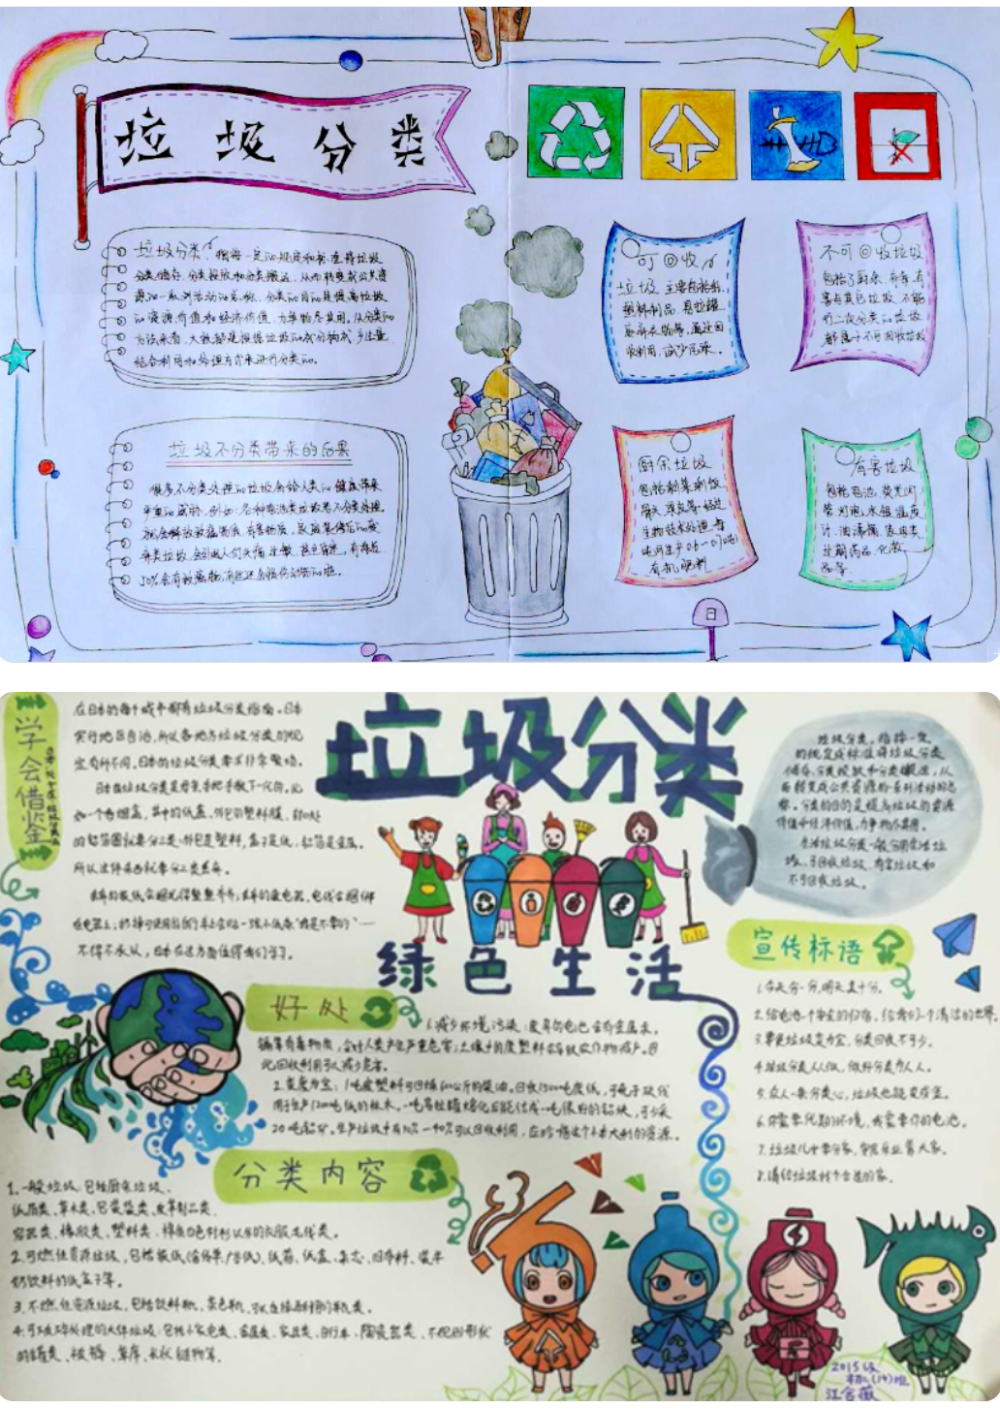 垃圾分类
垃圾分类，指按一定的规定和标准将垃圾
分类储存、分类投放和分类搬运，从而转变成公共资
源的一系列活动的总称。分类的目的是提高垃圾
的资源价值和经济价值，力争物尽其用。从分类的
方法来看，大致都是根据垃圾的成分构成、产生量，
结合利用和处理方式来进行分类的。
可回收
垃圾 主要包括纸
塑料制品、易拉罐
不可回收垃圾
包括了厨余、
害与其它垃圾，不能
行二次分类的垃圾
都属于不可回收垃圾
垃圾不分类带来的后果
很多不分类处理的垃圾会给人类的健康带来
严重的威胁。例如：各种电池类垃圾若不分类处理，
50%会有致癌物，有些还会损伤动物的
厨余垃圾
包括剩菜剩饭
骨头、
生物技术处理，每
吨可生产0.6-0.7吨
有机肥料
有害垃圾
包括电池、荧光灯
管、灯泡、水银温度
计、油漆桶、家电类
过期药品、化妆
品等
日
学会借鉴
在日本的每个城市都有垃圾分类指南。日本
实行地区自治，所以各地方垃圾分类的规
定有所不同。日本的垃圾分类要求非常繁琐。
日本的垃圾分类是母亲手把手教下一代的。比
如一个香烟盒，其中的纸盒、外包的塑料膜、封口处
的铝箔圈就要分三类：外包是塑料，盒子是纸，铝箔是金属。
所以这件东西就要分三类丢弃。
不得不承认，日本在这方面值得我们学习。
垃圾分类
垃圾分类，指按一定
的规定或标准将垃圾分类
储存、分类投放和分类搬运，从
而转变成公共资源的一系列活动的总
称。分类的目的是提高垃圾的资源
价值和经济价值，力争物尽其用。
生活垃圾分类一般分厨余垃
圾、可回收垃圾、有害垃圾和
不可回收垃圾。
绿色生活
宣传标语
1.今天分一分，明天美十分。
2.给电池一个安定的归宿，给我们一个清洁的世界。
3.要使垃圾变为宝，分类回收不可少。
4.垃圾分类人人做，做好分类为人人。
5.众人一条分类心，垃圾也能变成金。
6.你需要优美的环境，我需要你的电池。
7.垃圾儿女要分家，安居乐业靠大家。
8.请给垃圾找个合适的家。
好处
1.减少环境污染：废弃的电池含有金属汞、
镉等有毒物质，会对人类产生严重危害；土壤中的废塑料会导致农作物减产。因
此回收利用可以减少危害。
2.变废为宝：1吨废塑料可回炼600公斤的柴油。回收1500吨废纸，可免于砍伐
用于生产1200吨纸的林木。一吨易拉罐熔化后能结成一吨很好的铝块，可少采
20吨铝矿。生产垃圾中有30%-40%可以回收利用，应珍惜这个小本大利的资源。
分类内容
1.一般垃圾，包括厨余垃圾、
纸屑类、草木类、包装袋类、皮革制品类、
容器类、橡胶类、塑料类、棉质白色衬衫以外的衣服毛线类。
2.可燃性资源垃圾，包括报纸（含传单、广告纸）、纸箱、纸盒、杂志、旧布料、装牛
奶饮料的纸盒子等。
3.不燃性资源垃圾，包括饮料瓶、茶色瓶、可以直接再利用的瓶类。
4.可以破碎处理的大件垃圾：包括小家电类、金属类、家具类、自行车、陶瓷器类、不规则形状
的罐类、被褥、草席、长状链物等。
2015级
江含薇